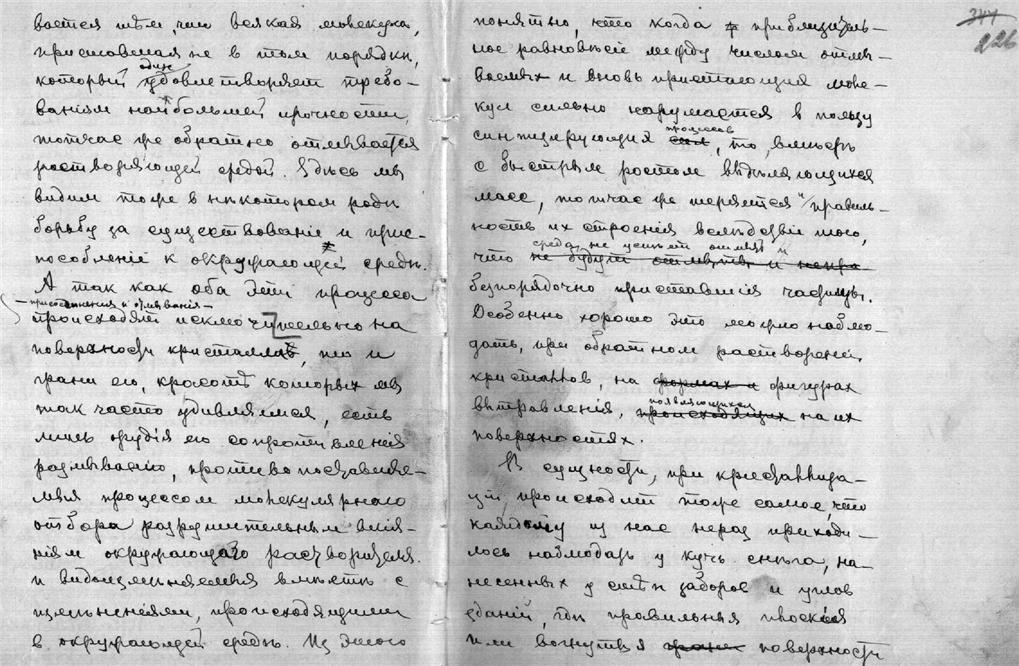 вается тѣмъ, что всякая молекула,
приставшая не в том порядкѣ,
один
который удовлетворяет требо-
ваніям наибольшей прочности,
тотчас же обратно отмывается
растворяющей средой. Здѣсь мы
видим тоже в нѣкотором родѣ
борьбу за существованіе и прис-
пособленіе к окружающей средѣ.
А так как оба эти процесса
присоединенія и отмыванія
происходят исключительно на
поверхности кристаллов, то и
грани его, красотѣ которых мы
так часто удивляемся, есть
лишь орудія его сопротивленія
размыванію, противопоставляе-
мыя процессом молекулярнаго
отбора разрушительным влія-
ніям окружающаго растворителя
и видоизмѣняемыя вмѣстѣ с
измѣненіями, происходящими
в окружающей средѣ. Из этого
344
226
понятно, что когда приблизитель-
ное равновѣсіе между числом отмы-
ваемых и вновь пристающих моле-
кул сильно нарушается в пользу
процессов
синтезирующих сил, то, вмѣстѣ
с быстрым ростом выдѣляющихся
масс, тотчас же теряется и правиль-
ность их строения вслѣдствіе того,
среда не успѣет отмыть и
что не будут отмыты и непра-
безпорядочно приставшія частицы.
Особенно хорошо это можно наблю-
дать, при обратном растворении
кристаллов, на формах и фигурах
появляющихся
вытравленія, происходящих на их
поверхностях.
В сущности, при кристаллиза-
ціи, происходит тоже самое что
каждому из нас нераз приходи-
лось наблюдать у куч снѣга, на-
несенных у стѣн заборов и углов
зданій, гдѣ правильныя плоскія
или вогнутыя грани поверхности